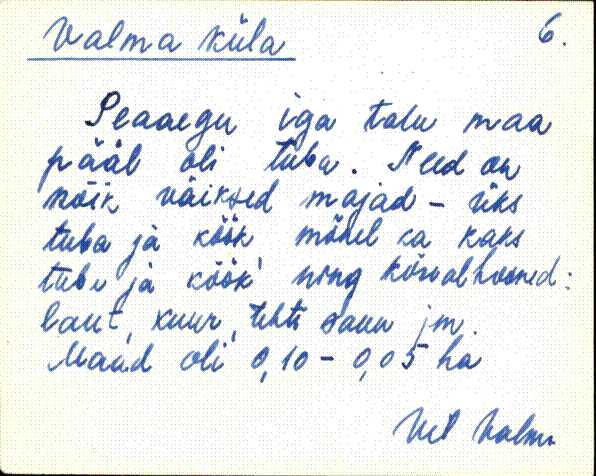 Valma küla 6.
Peaaegu iga talu maa
pääl oli tuba. Need on
kõik väiksed majad - üks
tuba ja köök mõnel ka kaks
tuba ja köök ning kõrvalhooned:
laut, kuur, tihti saun jm.
Maad oli 0,10 - 0,05 ha
Valma